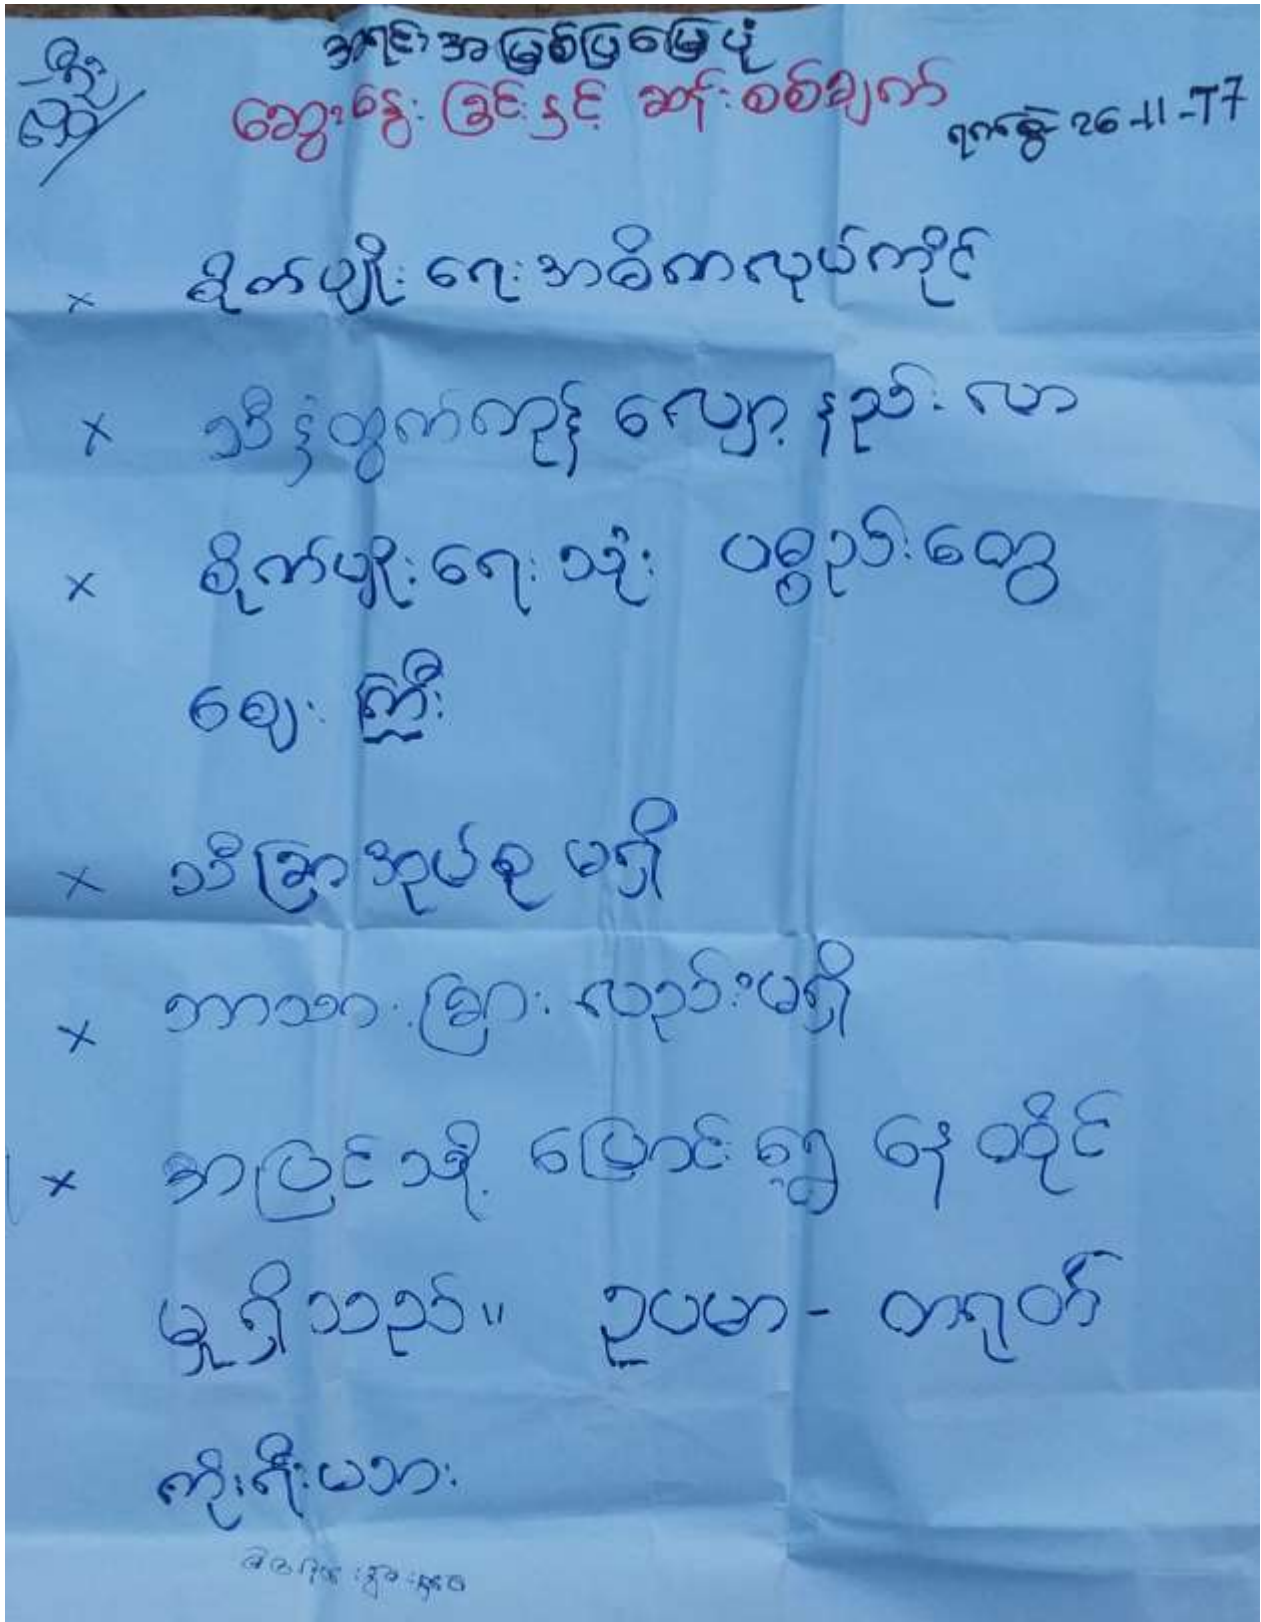 အရင်းအမြစ်ပြမြေပုံ
ဆွေးနွေးခြင်းနှင့် ဆန်းစစ်ချက်
ရက်စွဲ 26-11-17
× စိုက်ပျိုးရေးအဓိကလုပ်ကိုင်
× သီးနှံထွက်ကုန် လျော့နည်းလာ
× စိုက်ပျိုးရေးသုံး ပစ္စည်းတွေ
ဈေးကြီး
× သီခြားအုပ်စု မရှိ
× ဘာသာခြားလည်းမရှိ
× အပြင်သို့ ပြောင်းရွှေ့ နေထိုင်
မှု ရှိသည်။ ဥပမာ - တရုတ်
ကိုးရီးယား